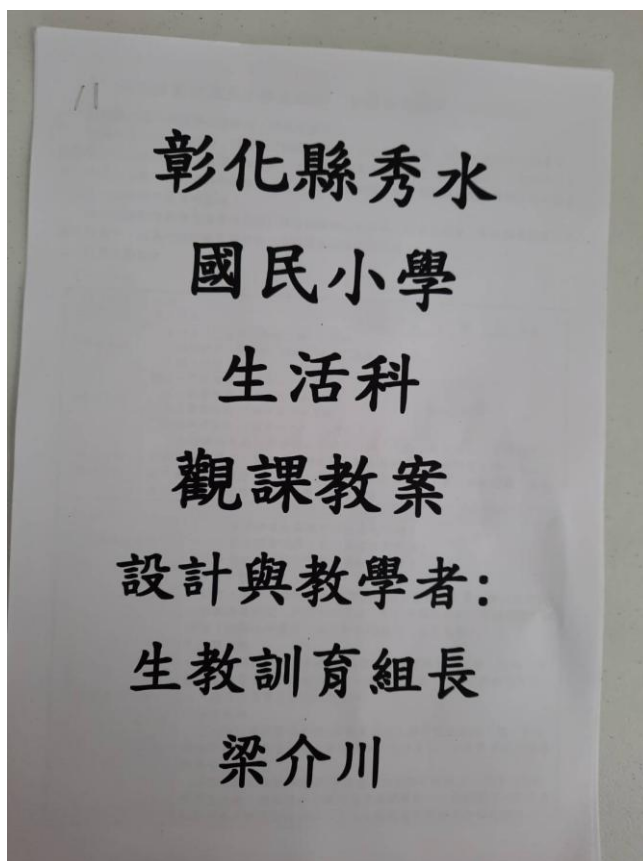 彰化縣秀水
國民小學
生活科
觀課教案
設計與教學者:
生教訓育組長
梁介川